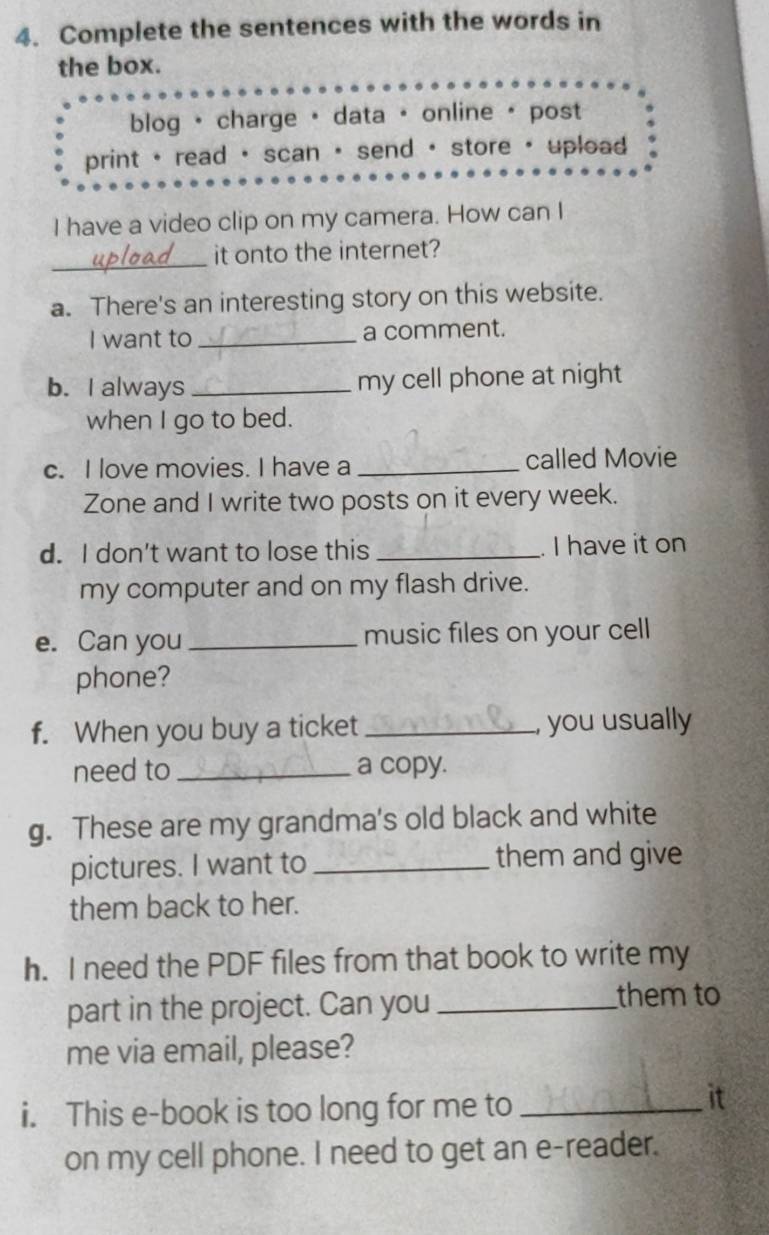 4. Complete the sentences with the words in
the box.
blog • charge • data • online • post
print • read • scan • send • store • upload
I have a video clip on my camera. How can I
upload it onto the internet?
a. There's an interesting story on this website.
I want to ____________ a comment.
b. I always ____________ my cell phone at night
when I go to bed.
c. I love movies. I have a ____________ called Movie
Zone and I write two posts on it every week.
d. I don't want to lose this ____________. I have it on
my computer and on my flash drive.
e. Can you ____________ music files on your cell
phone?
f. When you buy a ticket ____________, you usually
need to ____________ a copy.
g. These are my grandma's old black and white
pictures. I want to ____________ them and give
them back to her.
h. I need the PDF files from that book to write my
part in the project. Can you ____________ them to
me via email, please?
i. This e-book is too long for me to ____________ it
on my cell phone. I need to get an e-reader.